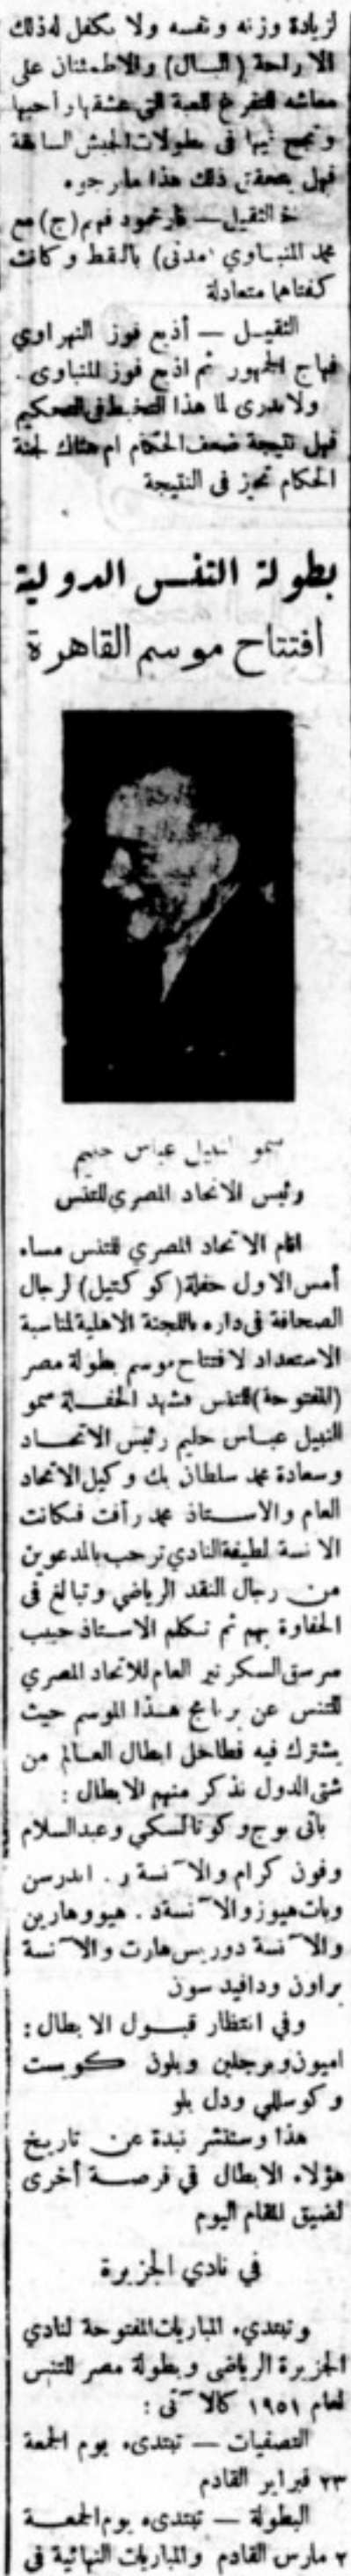 لزيادة وزنه ونفسه ولا يكفل له ذلك
الا راحة (البال) والاطمئنان على
معاشه للتفرغ للعبة التى عشقها وأحبها
ونجح فيها فى بطولات الجيش السابقة
فهل يتحقق ذلك هذا ما نرجوه
خ الثقيل — فاز محمود فهيم (ج) مع
محمد المنياوي (مدنى) بالنقط وكانت
كفتاهما متعادلة
الثقيل — أذيع فوز النهراوي
فهاج الجمهور ثم اذيع فوز المنياوى .
ولا ندرى لما هذا التخبط فى التحكيم
فهل نتيجة ضعف الحكام ام هناك لجنة
الحكام تحيز فى النتيجة
بطولة التنس الدولية
افتتاح موسم القاهرة
سمو النبيل عباس حليم
رئيس الاتحاد المصري للتنس
اقام الاتحاد المصري للتنس مساء
أمس الاول حفلة (كوكتيل) لرجال
الصحافة فى داره باللجنة الاهلية لمناسبة
الاستعداد لافتتاح موسم بطولة مصر
(المفتوحة) للتنس فشهد الحفلة سمو
النبيل عباس حليم رئيس الاتحاد
وسعادة محمد سلطان بك وكيل الاتحاد
العام والاستاذ محمد رأفت فكانت
الانسة لطيفة النادي ترحب بالمدعوين
من رجال النقد الرياضي وتبالغ فى
الحفاوة بهم ثم تكلم الاستاذ حبيب
سرسق السكرتير العام للاتحاد المصري
للتنس عن برنامج هذا الموسم حيث
يشترك فيه فطاحل ابطال العالم من
شتى الدول نذكر منهم الابطال :
باتى بوج وكوتالسكي وعبد السلام
وفون كرام والآنسة ر . اندرسن
وبات هيوز والآنسة د . هيوو هاربن
والآنسة دوريس هارت والآنسة
براون ودافيد سون
وفي انتظار قبول الابطال :
اميون وبرجلين وبلون كوست
وكوسللي ودل بلو
هذا وسننشر نبذة عن تاريخ
هؤلاء الابطال في فرصة أخرى
لضيق المقام اليوم
في نادي الجزيرة
وتبتدىء المباريات المفتوحة لنادي
الجزيرة الرياضى وبطولة مصر للتنس
لعام ١٩٥١ كالآتى :
التصفيات — تبتدىء يوم الجمعة
٢٣ فبراير القادم
البطولة — تبتدىء يوم الجمعة
٢ مارس القادم والمباريات النهائية فى